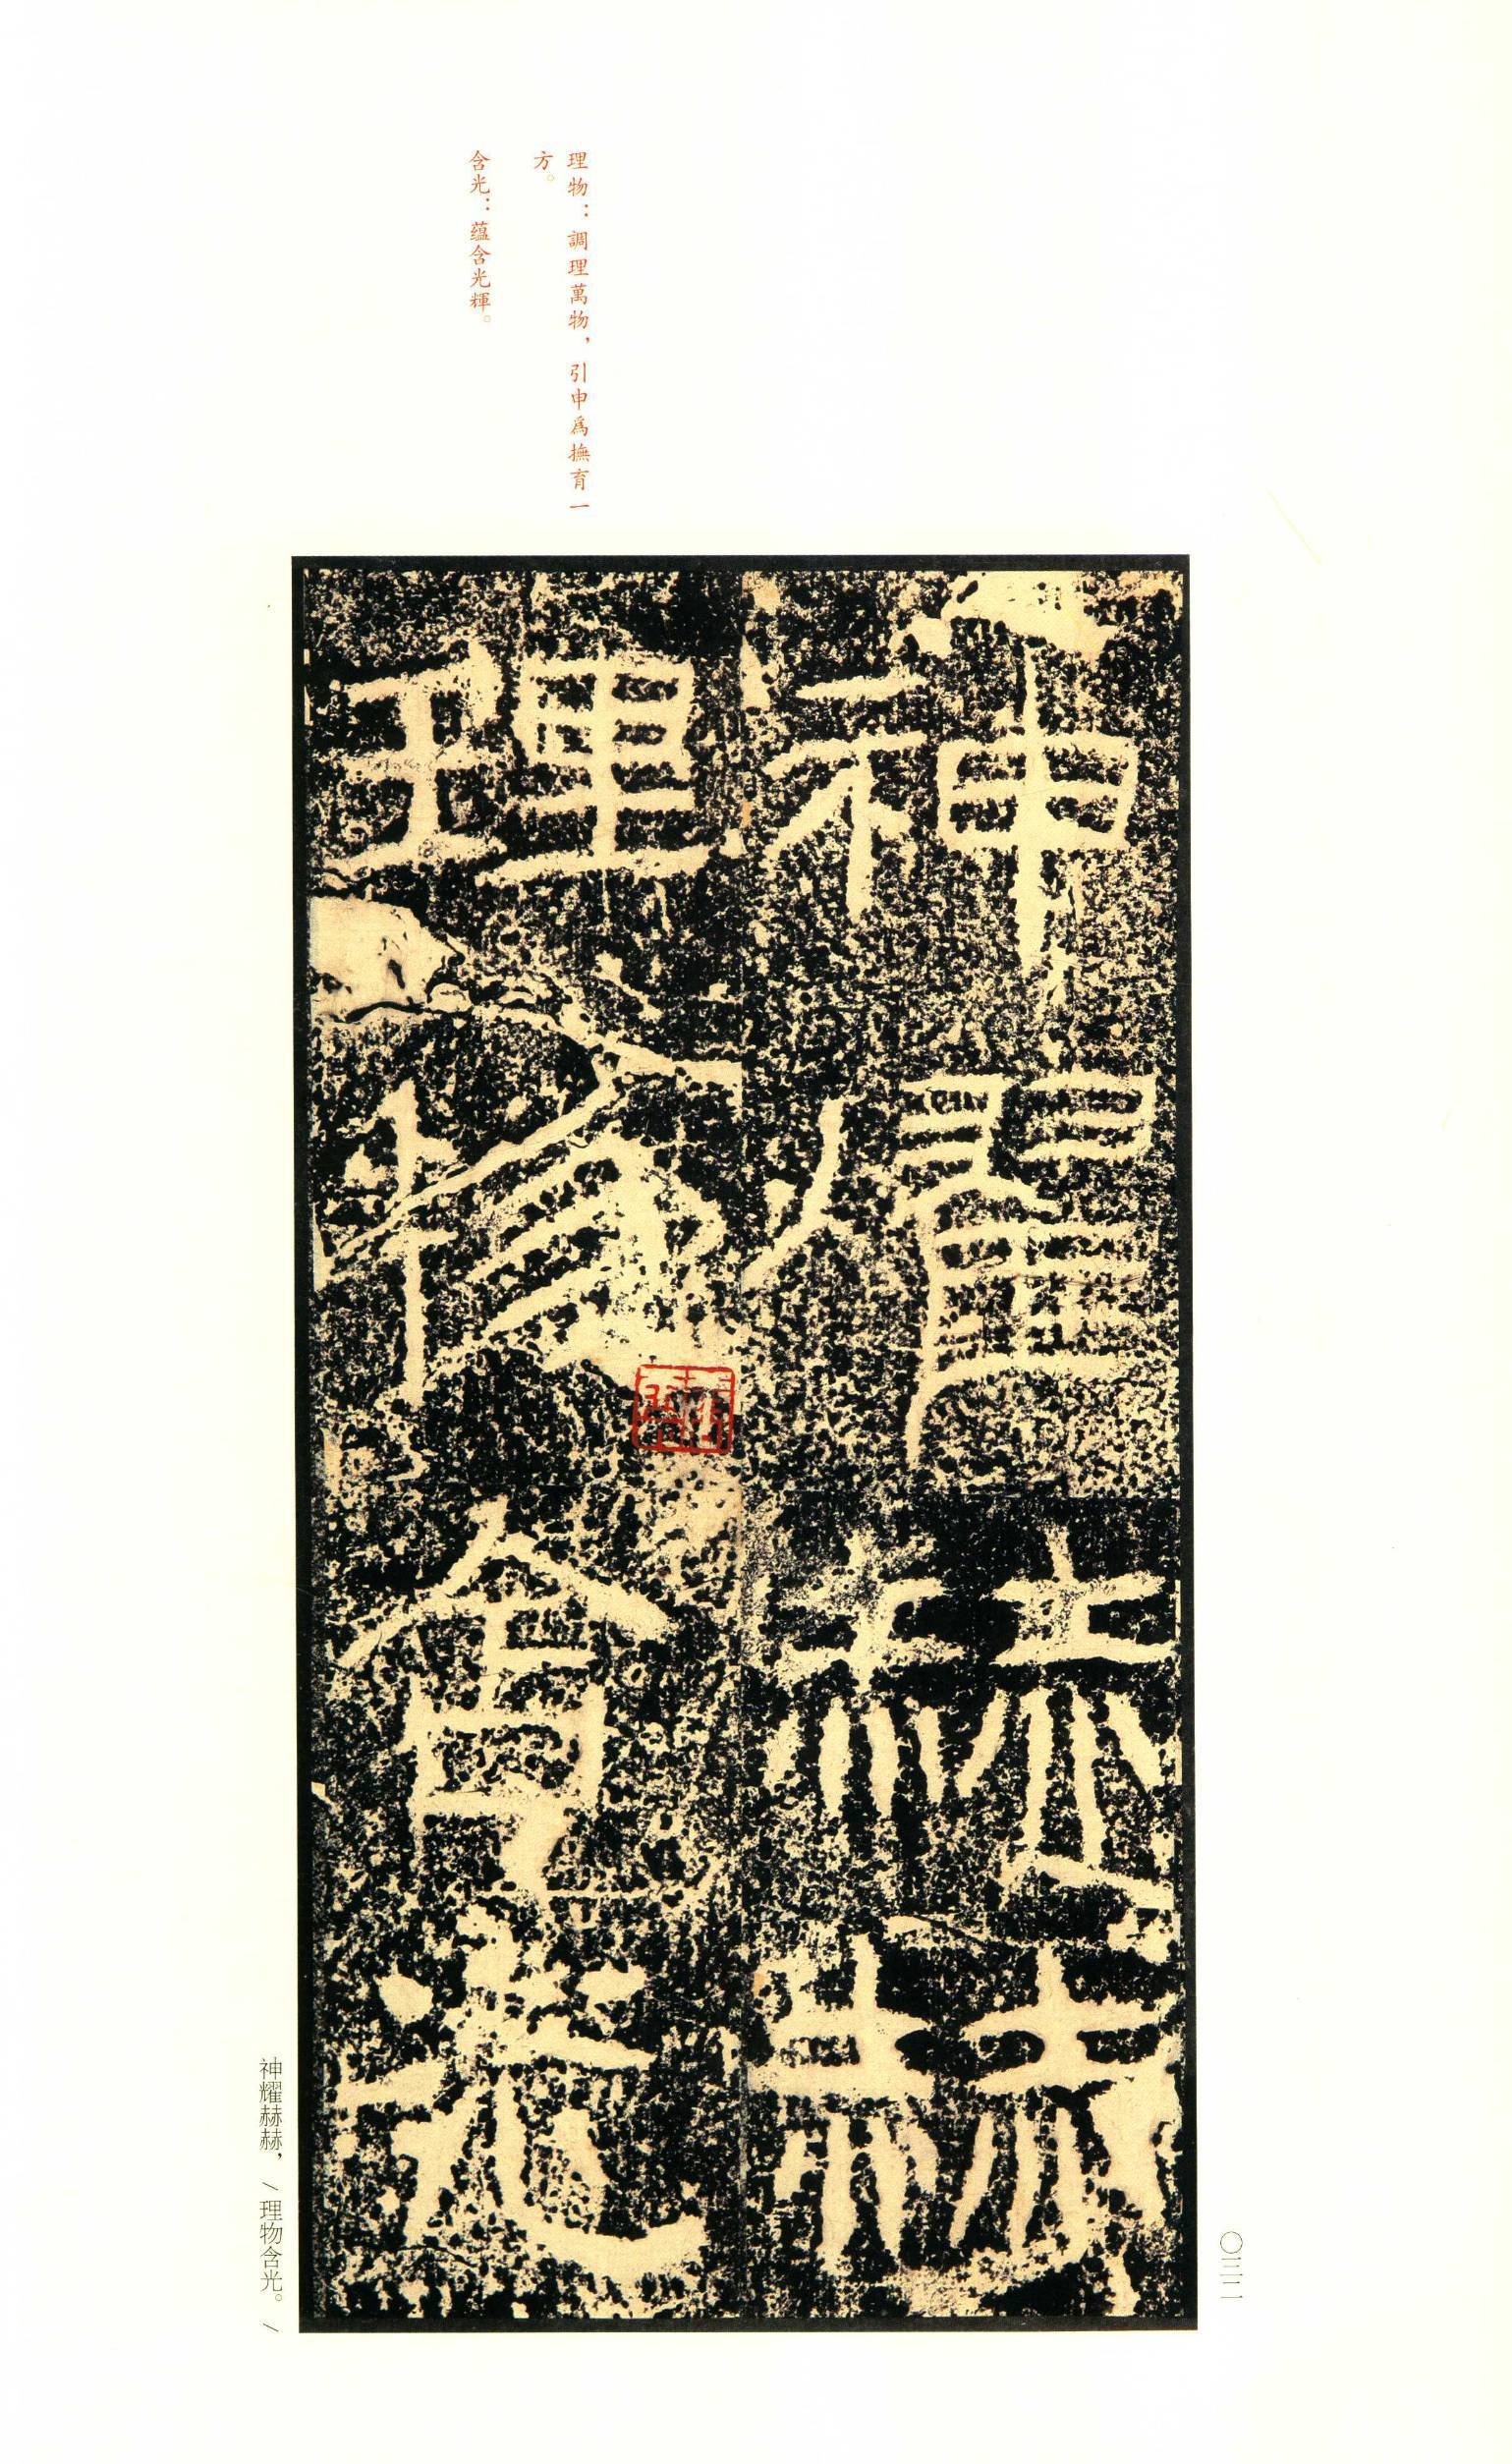 理物：調理萬物，引申爲撫育一
方。
含光：蘊含光輝。
神燿赫赫
理物含光
神耀赫赫，/理物含光。/
〇三二